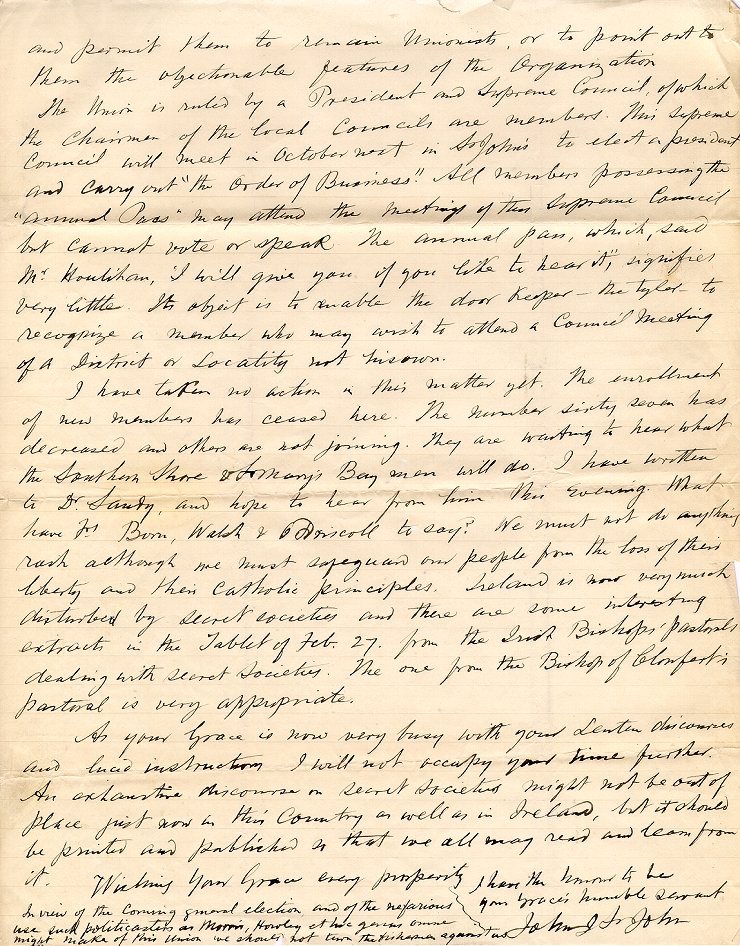 and permit them to remain Unionists, or to point out to
them the objectionable features of the Organization
The Union is ruled by a President and Supreme Council, of which
the Chairmen of the local Councils are members. This Supreme
Council will meet in October next in St John's to elect a president
and carry out "the Order of Business". All members possessing the
"Annual Pass" may attend the meetings of this Supreme Council
but cannot vote or speak The annual pass, which, said
Mr Houlihan, 'I will give you if you like to hear it", signifies
very little. Its object is to enable the door keeper - the tyler to
recognize a member who may wish to attend a Council Meeting
of a District or Locality not his own.
I have taken no action in this matter yet. The enrollment
of new members has ceased here. The number sixty seven has
decreased and others are not joining. They are waiting to hear what
the Southern Shore & St Mary's Bay men will do. I have written
to Dr. Sandy, and hope to hear from him this evening. What
have Frs Born, Walsh & O'Driscoll to say? We must not do anything
rash although we must safeguard our people from the loss of their
liberty and their Catholic principles. Ireland is now very much
disturbed by secret societies and there are some interesting
extracts in the Tablet of Feb. 27. from the Irish Bishops' Pastorals
dealing with secret societies. The one from the Bishop of Clonfert's
Pastoral is very appropriate.
As your Grace is now very busy with your Lenten discourses
and lucid instructions I will not occupy your time further.
An exhaustive discourse on secret societies might not be out of
place just now in this Country as well as in Ireland, but it should
be printed and published so that we all may read and learn from
it. Wishing Your Grace every prosperity
I have the honour to be
your Grace's humble servant
John J St John
In view of the coming general election, and of the nefarious
use such politicasters as Morris, Howley et hoc genus omne
might make of this Union we should not turn the fishermen against us